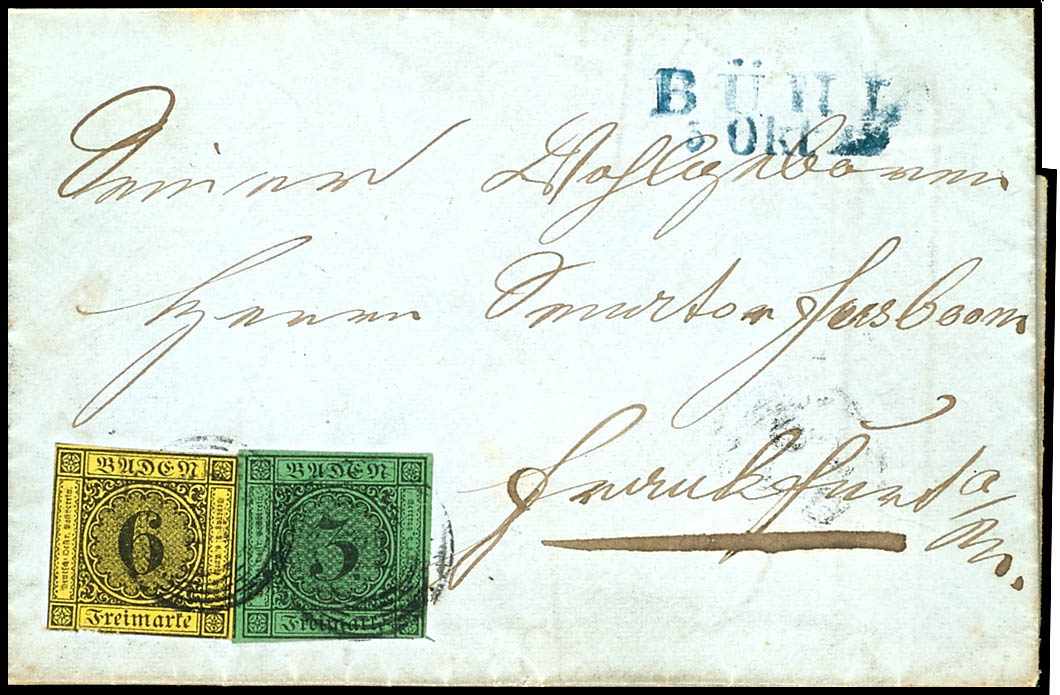 BÜHL
5 Okt
Seiner Wohlgeboren
Herrn Senator
Frankfurt a/M.
BADEN
6
Freimarke
BADEN
3.
Freimarke